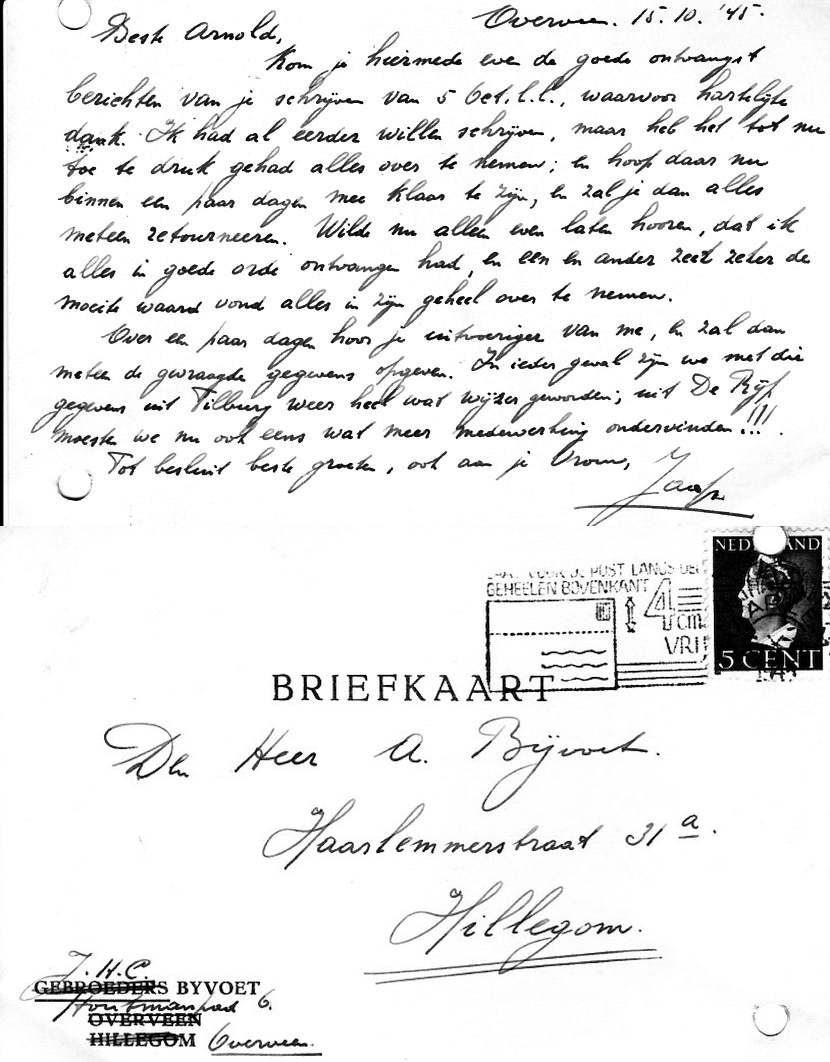 Overveen. 15.10.'45.
Beste Arnold,
Kom je hiermede even de goede ontvangst
berichten van je schrijven van 5 Oct. l.l., waarvoor hartelijke
dank. Ik had al eerder willen schrijven, maar heb het tot nu
toe te druk gehad alles over te nemen; en hoop daar nu
binnen een paar dagen mee klaar te zijn, en zal je dan alles
meteen retourneeren. Wilde nu alleen even laten hooren, dat ik
alles in goede orde ontvangen had, en een en ander zeer zeker de
moeite waard vond alles in zijn geheel over te nemen.
Over een paar dagen hoor je uitvoeriger van me, en zal dan
meteen de gevraagde gegevens opgeven. In ieder geval zijn we met die
gegevens uit Tilburg weer heel wat wijzer geworden; uit De Rijp
moesten we nu ook eens wat meer medewerking ondervinden!!!.
Tot besluit beste groeten, ook aan je Vrouw,
Jaap
VOOR JE POST LANGS DEN
GEHEELEN BOVENKANT
4
cm
VRIJ
NEDERLAND
5 CENT
BRIEFKAART
Den Heer A. Bijvoet.
Haarlemmerstraat 31 a.
Hillegom.
J. H. C.
GEBROEDERS BYVOET
Houtmanpad 6.
OVERVEEN
HILLEGOM Overveen.